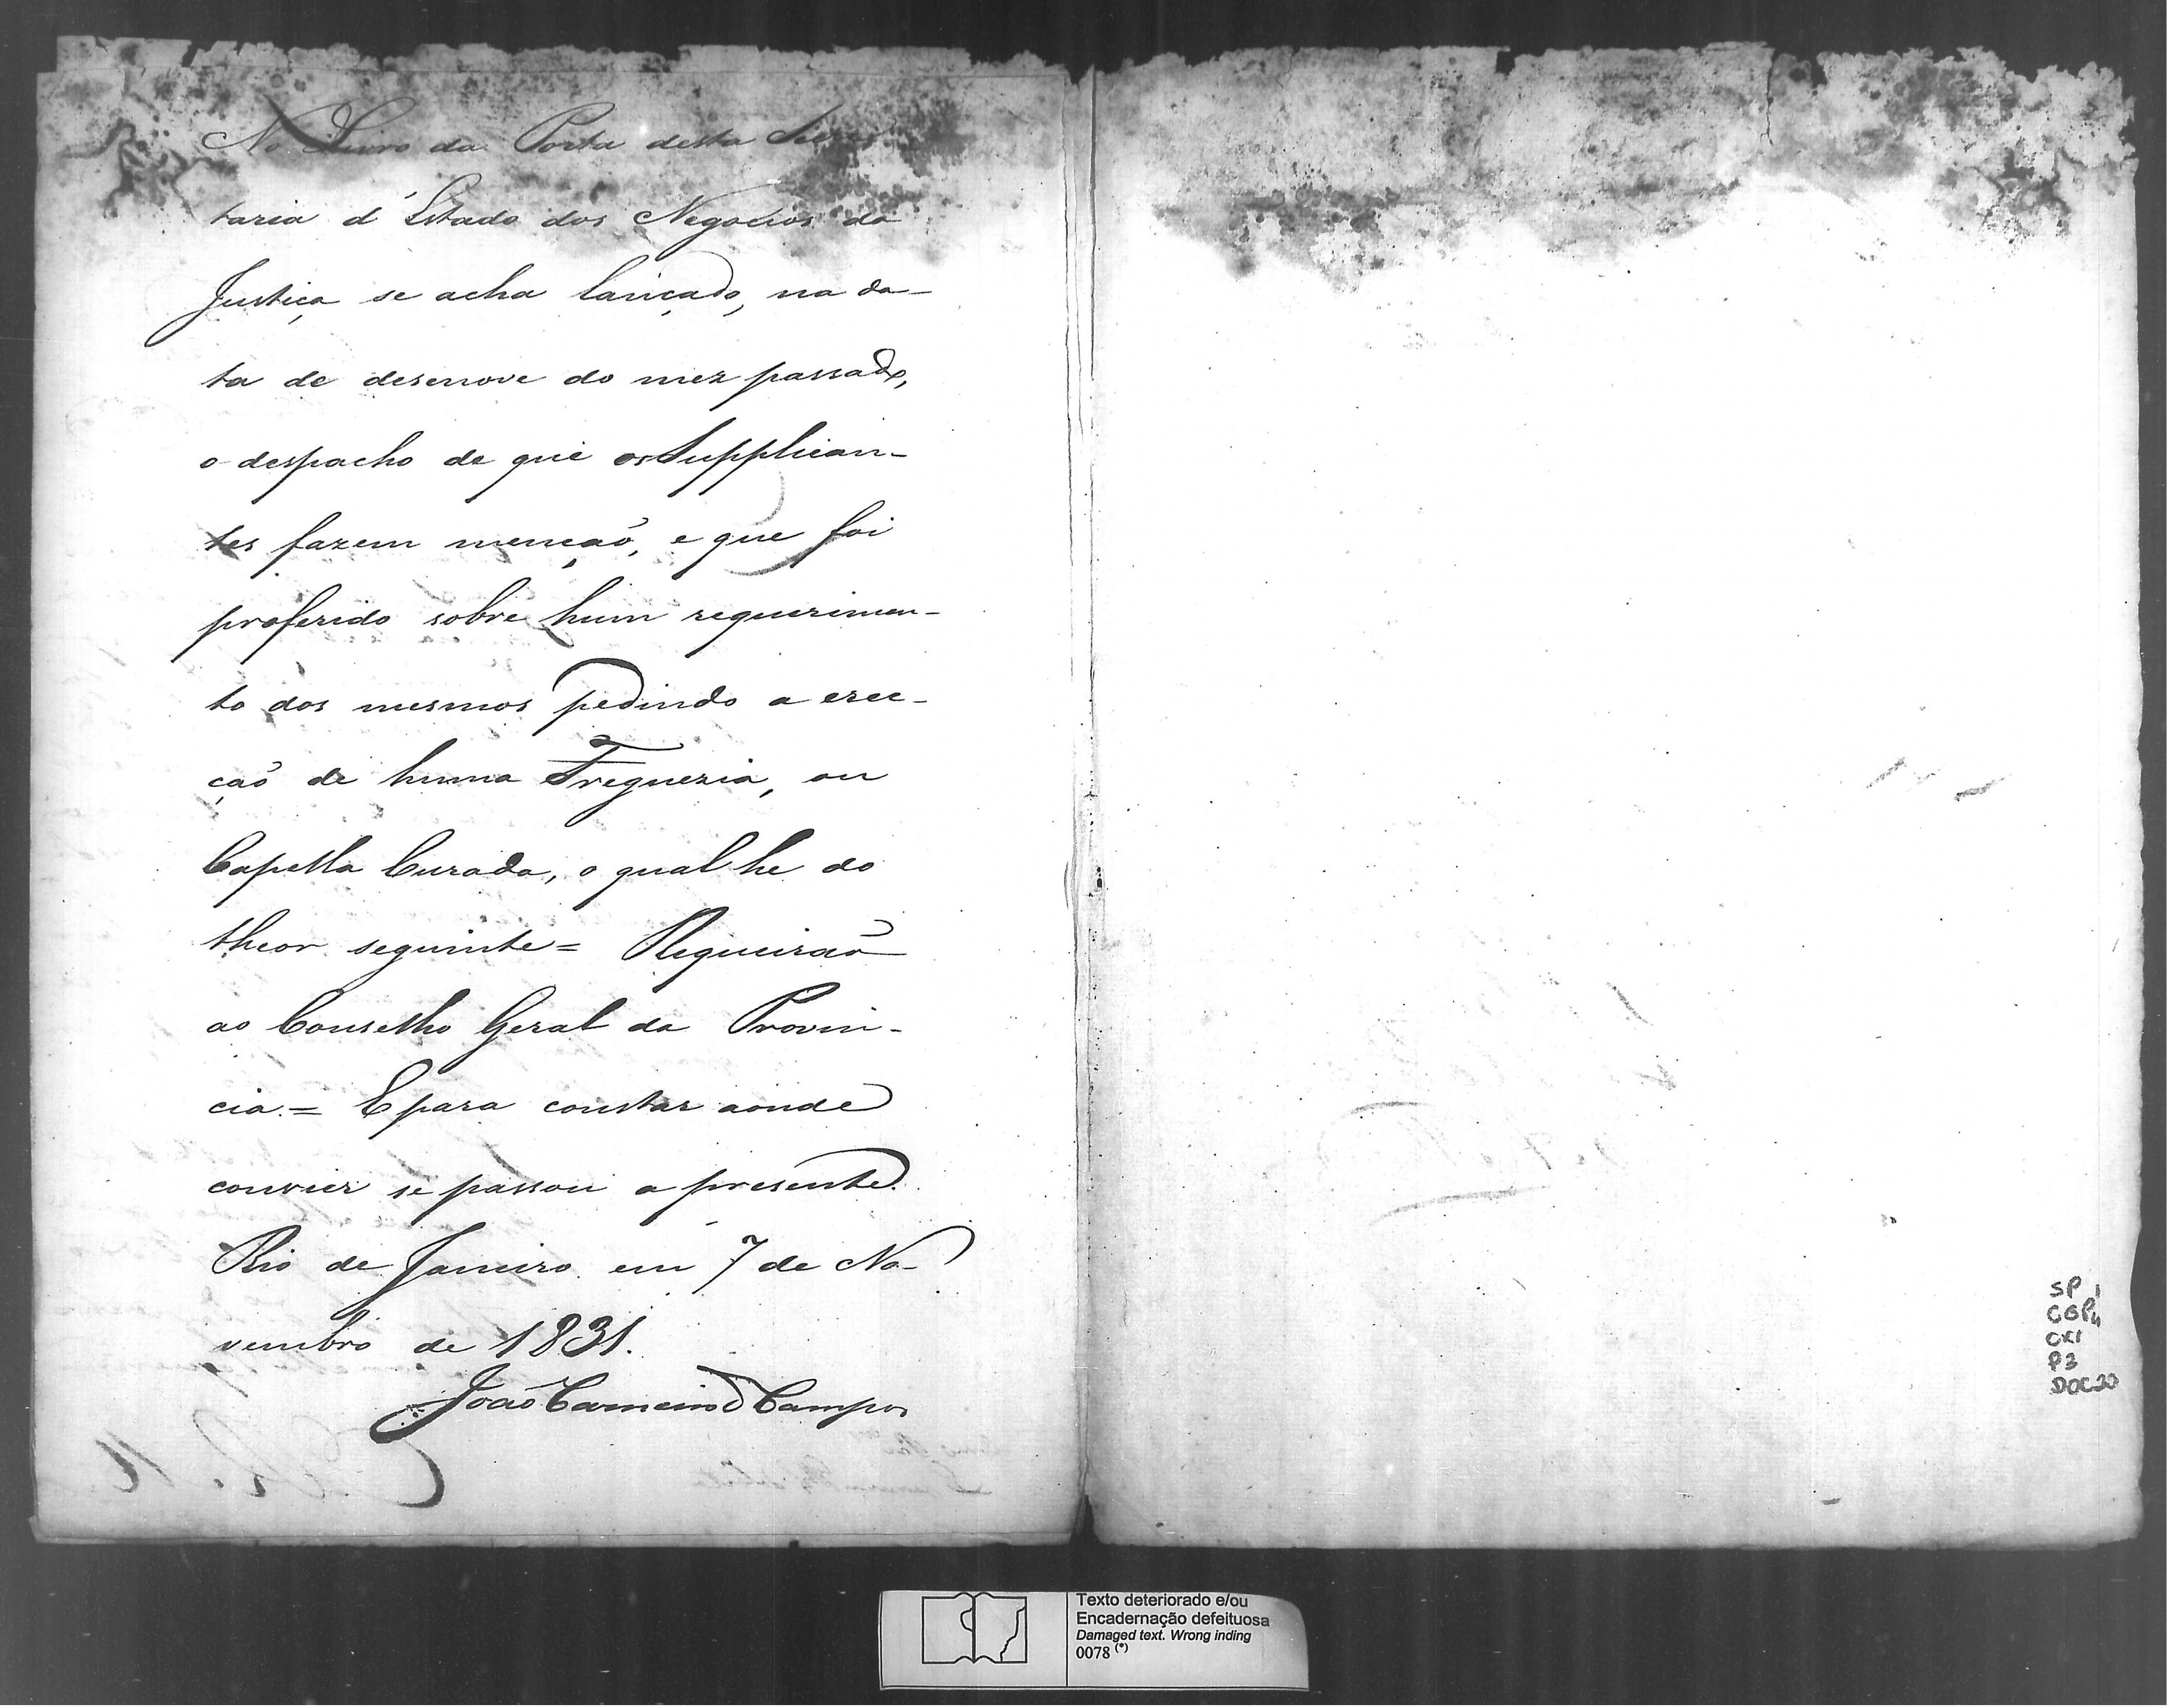 No Livro da Porta desta Secre
taria d'Estado dos Negocios da
Justiça se acha lançado, na da-
ta de desenove do mez passado,
o despacho de que os Supplican-
tes fazem menção, e que foi
proferido sobre hum requerimen-
to dos mesmos pedindo a erec-
ção de huma Freguezia, ou
Capella Curada, o qual he do
theor seguinte = Requeirão
ao Conselho Geral da Provin-
cia. = E para constar aonde
convier se passou a presente.
Rio de Janeiro em 7 de No-
vembro de 1831.
João Carneiro de Campos
SP 1
CGP4
CX1
P3
DOC20
Texto deteriorado e/ou
Encadernação defeituosa
Damaged text. Wrong inding
0078 (*)